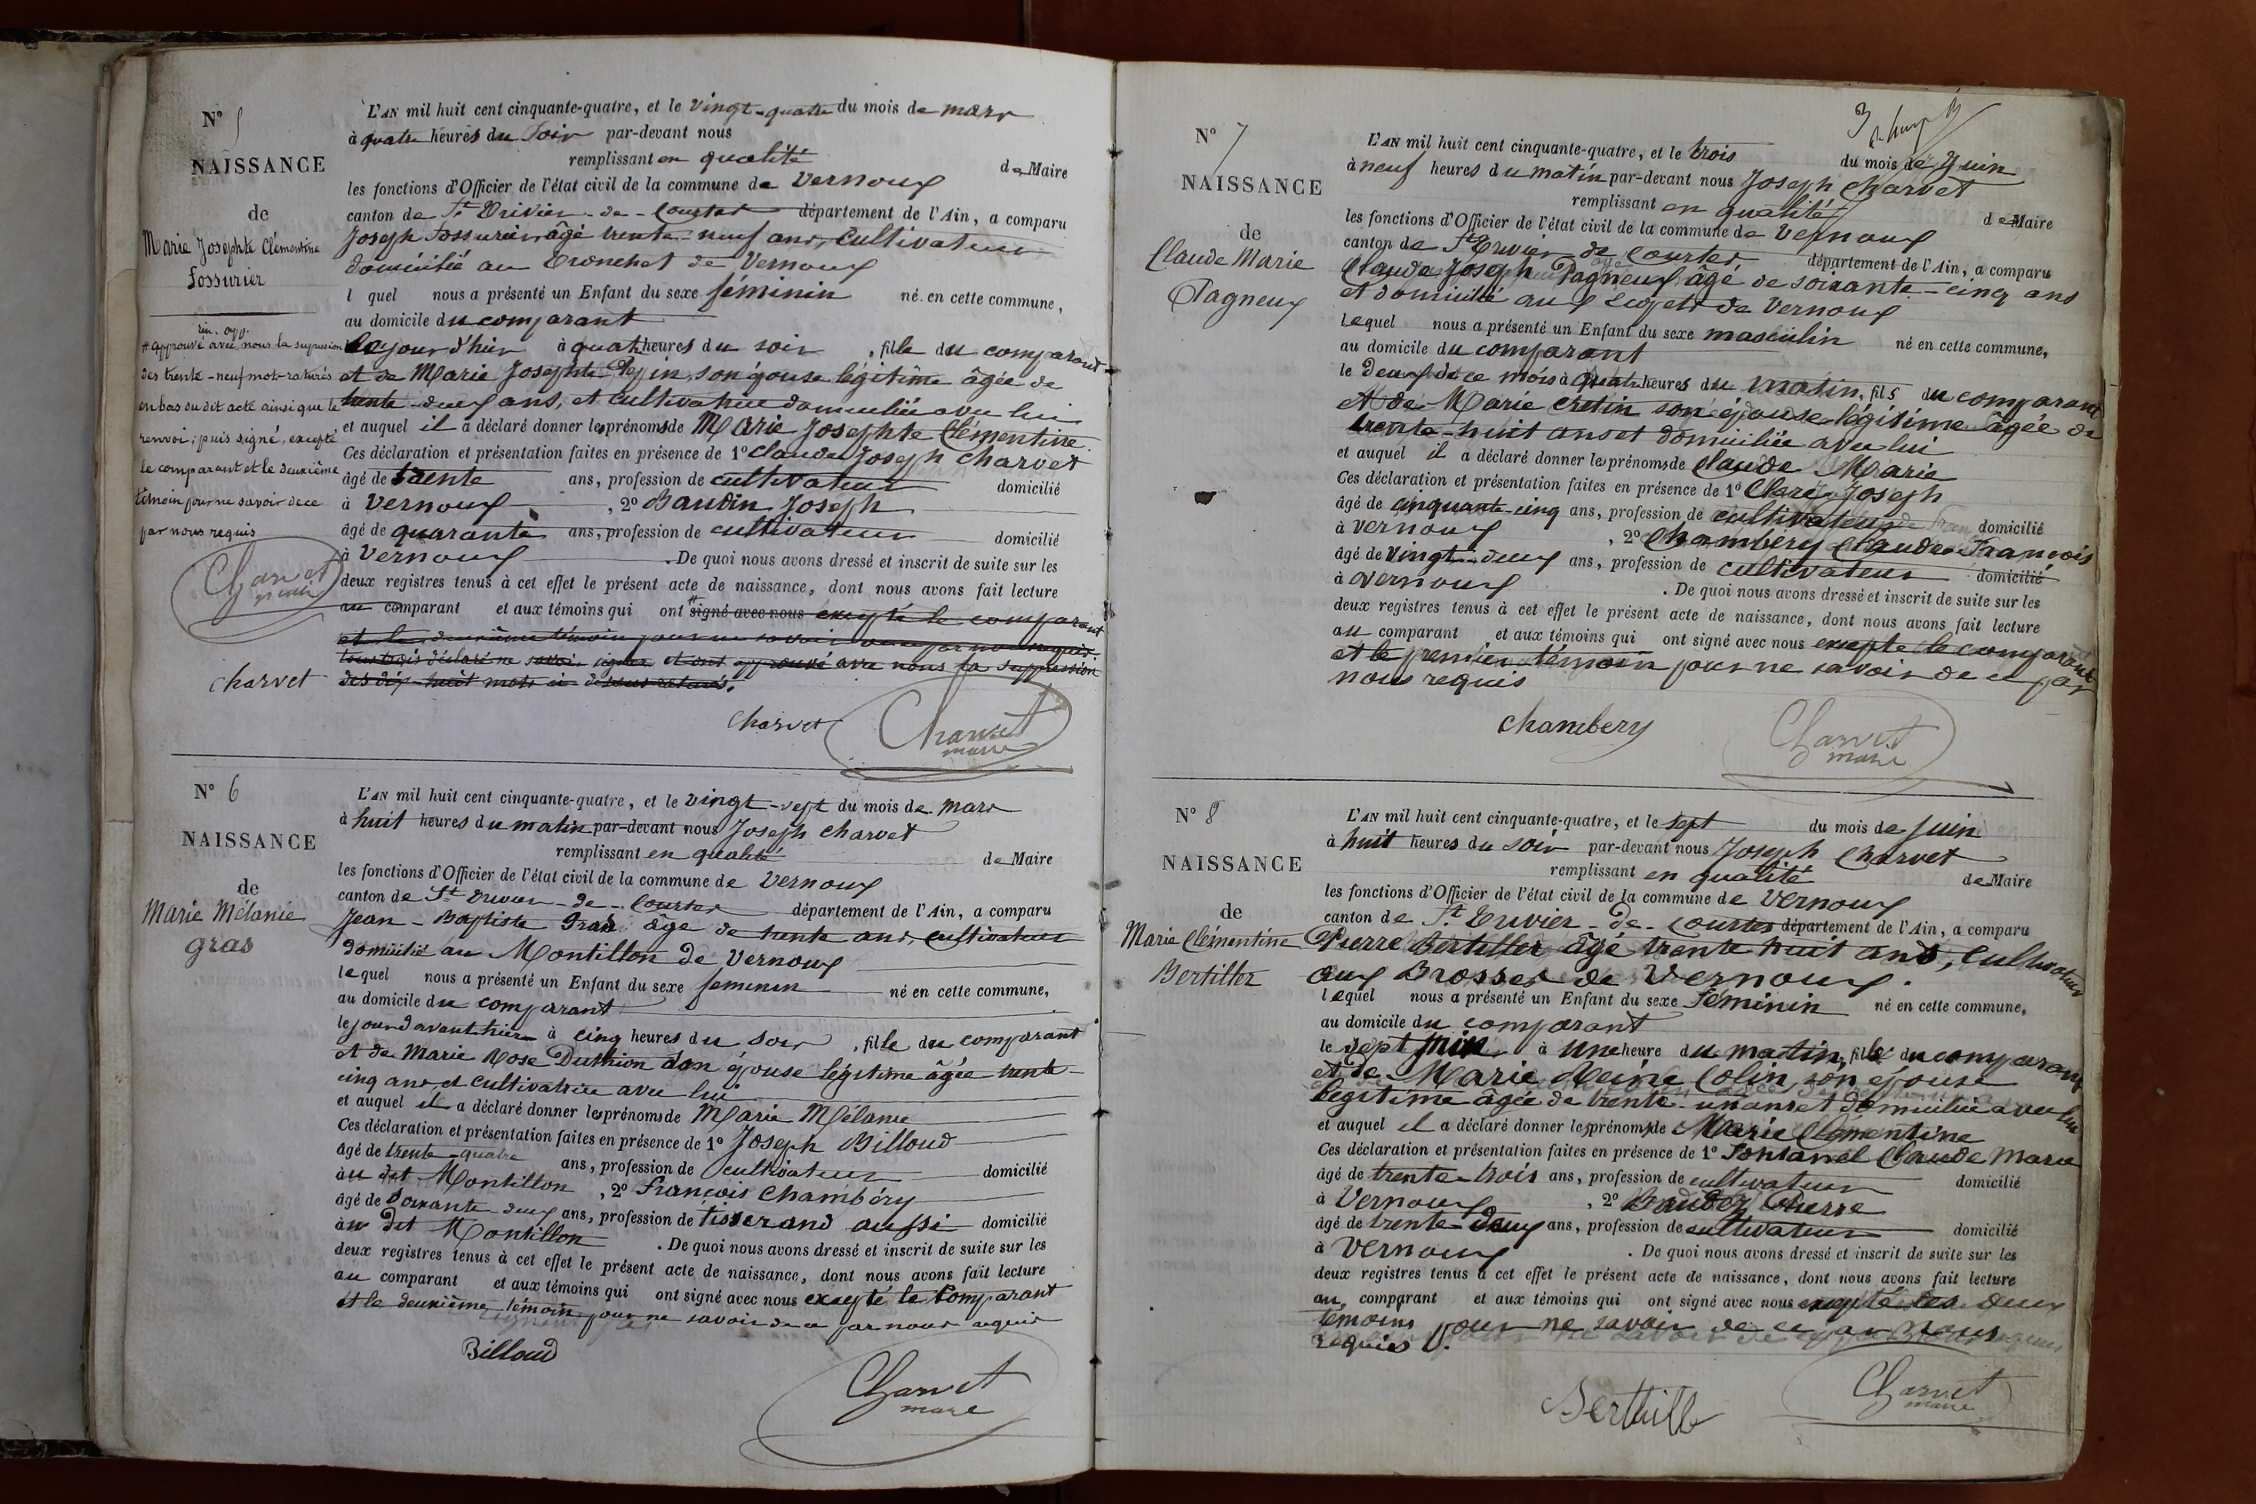 N° 5
NAISSANCE
de
Marie Josephte Clémentine
Fossurier
rin. app.
# approuvé avec nous la supression
des trente-neuf mots raturés
en bas du dit acte ainsi que le
renvoi; puis signé, excepté
le comparant et le deuxième
témoin pour ne savoir de ce
par nous requis
Charvet
maire
charvet
L'AN mil huit cent cinquante-quatre, et le vingt-quatre du mois de mars
à quatre heures du soir par-devant nous
remplissant en qualité de Maire
les fonctions d'Officier de l'état civil de la commune de Vernoux
canton de St Trivier-de-Courtes département de l'Ain, a comparu
Joseph Fossurier, âgé trente-neuf ans, cultivateur
domicilié au Tronchet de Vernoux
l quel nous a présenté un Enfant du sexe féminin né en cette commune,
au domicile du comparant
le jour d'hier à quatre heures du soir, fille du comparant
et de Marie Josephte Pepin, son épouse légitime âgée de
trente-deux ans, et cultivatrice domiciliée avec lui
et auquel il a déclaré donner les prénoms de Marie Josephte Clémentine
Ces déclaration et présentation faites en présence de 1° Claude Joseph Charvet
âgé de trente ans, profession de cultivateur domicilié
à Vernoux, 2° Baudin Joseph
âgé de quarante ans, profession de cultivateur domicilié
à Vernoux. De quoi nous avons dressé et inscrit de suite sur les
deux registres tenus à cet effet le présent acte de naissance, dont nous avons fait lecture
au comparant et aux témoins qui ont # signé avec nous excepté le comparant
et le deuxième témoin pour ne savoir de ce par nous requis
tous trois déclaré ne savoir signer et ont approuvé avec nous la suppression
des dix-huit mots ci-dessus raturés.
charvet
Charvet
maire
N° 6
NAISSANCE
de
Marie Mélanie
gras
L'AN mil huit cent cinquante-quatre, et le vingt-sept du mois de mars
à huit heures du matin par-devant nous Joseph Charvet
remplissant en qualité de Maire
les fonctions d'Officier de l'état civil de la commune de Vernoux
canton de St Trivier-de-Courtes département de l'Ain, a comparu
Jean-Baptiste Gras âgé de trente ans, cultivateur
domicilié au Montillon de Vernoux
lequel nous a présenté un Enfant du sexe féminin né en cette commune,
au domicile du comparant
le jour d'avant hier à cinq heures du soir, fille du comparant
et de Marie Rose Duthion son épouse légitime âgée trente
cinq ans et cultivatrice avec lui
et auquel il a déclaré donner les prénoms de Marie Mélanie
Ces déclaration et présentation faites en présence de 1° Joseph Billoud
âgé de trente-quatre ans, profession de cultivateur domicilié
au dit Montillon, 2° François Chambéry
âgé de soixante-deux ans, profession de tisserand aussi domicilié
au dit Montillon. De quoi nous avons dressé et inscrit de suite sur les
deux registres tenus à cet effet le présent acte de naissance, dont nous avons fait lecture
au comparant et aux témoins qui ont signé avec nous excepté le comparant
et le deuxième témoin pour ne savoir de ce par nous requis
Billoud
Charvet
maire
3
N° 7
NAISSANCE
de
Claude Marie
Pagneux
L'AN mil huit cent cinquante-quatre, et le trois du mois de Juin
à neuf heures du matin par-devant nous Joseph Charvet
remplissant en qualité de Maire
les fonctions d'Officier de l'état civil de la commune de Vernoux
canton de St Trivier-de-Courtes département de l'Ain, a comparu
Claude Joseph Pagneux âgé de soixante-cinq ans
et domicilié aux de Vernoux
lequel nous a présenté un Enfant du sexe masculin né en cette commune,
au domicile du comparant
le deux de ce mois à quatre heures du matin, fils du comparant
et de Marie Cretin son épouse légitime âgée de
trente-huit ans et domiciliée avec lui
et auquel il a déclaré donner les prénoms de Claude Marie
Ces déclaration et présentation faites en présence de 1° Claret Joseph
âgé de cinquante-cinq ans, profession de cultivateur domicilié
à Vernoux, 2° Chambéry Claude-François
âgé de vingt-deux ans, profession de cultivateur domicilié
à Vernoux. De quoi nous avons dressé et inscrit de suite sur les
deux registres tenus à cet effet le présent acte de naissance, dont nous avons fait lecture
au comparant et aux témoins qui ont signé avec nous excepté le comparant
et le premier témoin pour ne savoir de ce par
nous requis
Chambery
Charvet
maire
N° 8
NAISSANCE
de
Marie Clémentine
Bertiller
L'AN mil huit cent cinquante-quatre, et le sept du mois de Juin
à huit heures du soir par-devant nous Joseph Charvet
remplissant en qualité de Maire
les fonctions d'Officier de l'état civil de la commune de Vernoux
canton de St Trivier-de-Courtes département de l'Ain, a comparu
Pierre Bertiller âgé trente huit ans, cultivateur
aux Brosses de Vernoux.
lequel nous a présenté un Enfant du sexe féminin né en cette commune,
au domicile du comparant
le sept juin à une heure du matin, fille du comparant
et de Marie Reine Colin, son épouse
légitime âgée de trente-un ans et domiciliée avec lui
et auquel il a déclaré donner les prénoms de Marie Clémentine
Ces déclaration et présentation faites en présence de 1° Fontanel Claude Marie
âgé de trente-trois ans, profession de cultivateur domicilié
à Vernoux, 2° Baudez Pierre
âgé de trente-deux ans, profession de cultivateur domicilié
à Vernoux. De quoi nous avons dressé et inscrit de suite sur les
deux registres tenus à cet effet le présent acte de naissance, dont nous avons fait lecture
au comparant et aux témoins qui ont signé avec nous excepté les deux
témoins pour ne savoir de ce par nous
requis
Berthille
Charvet
maire